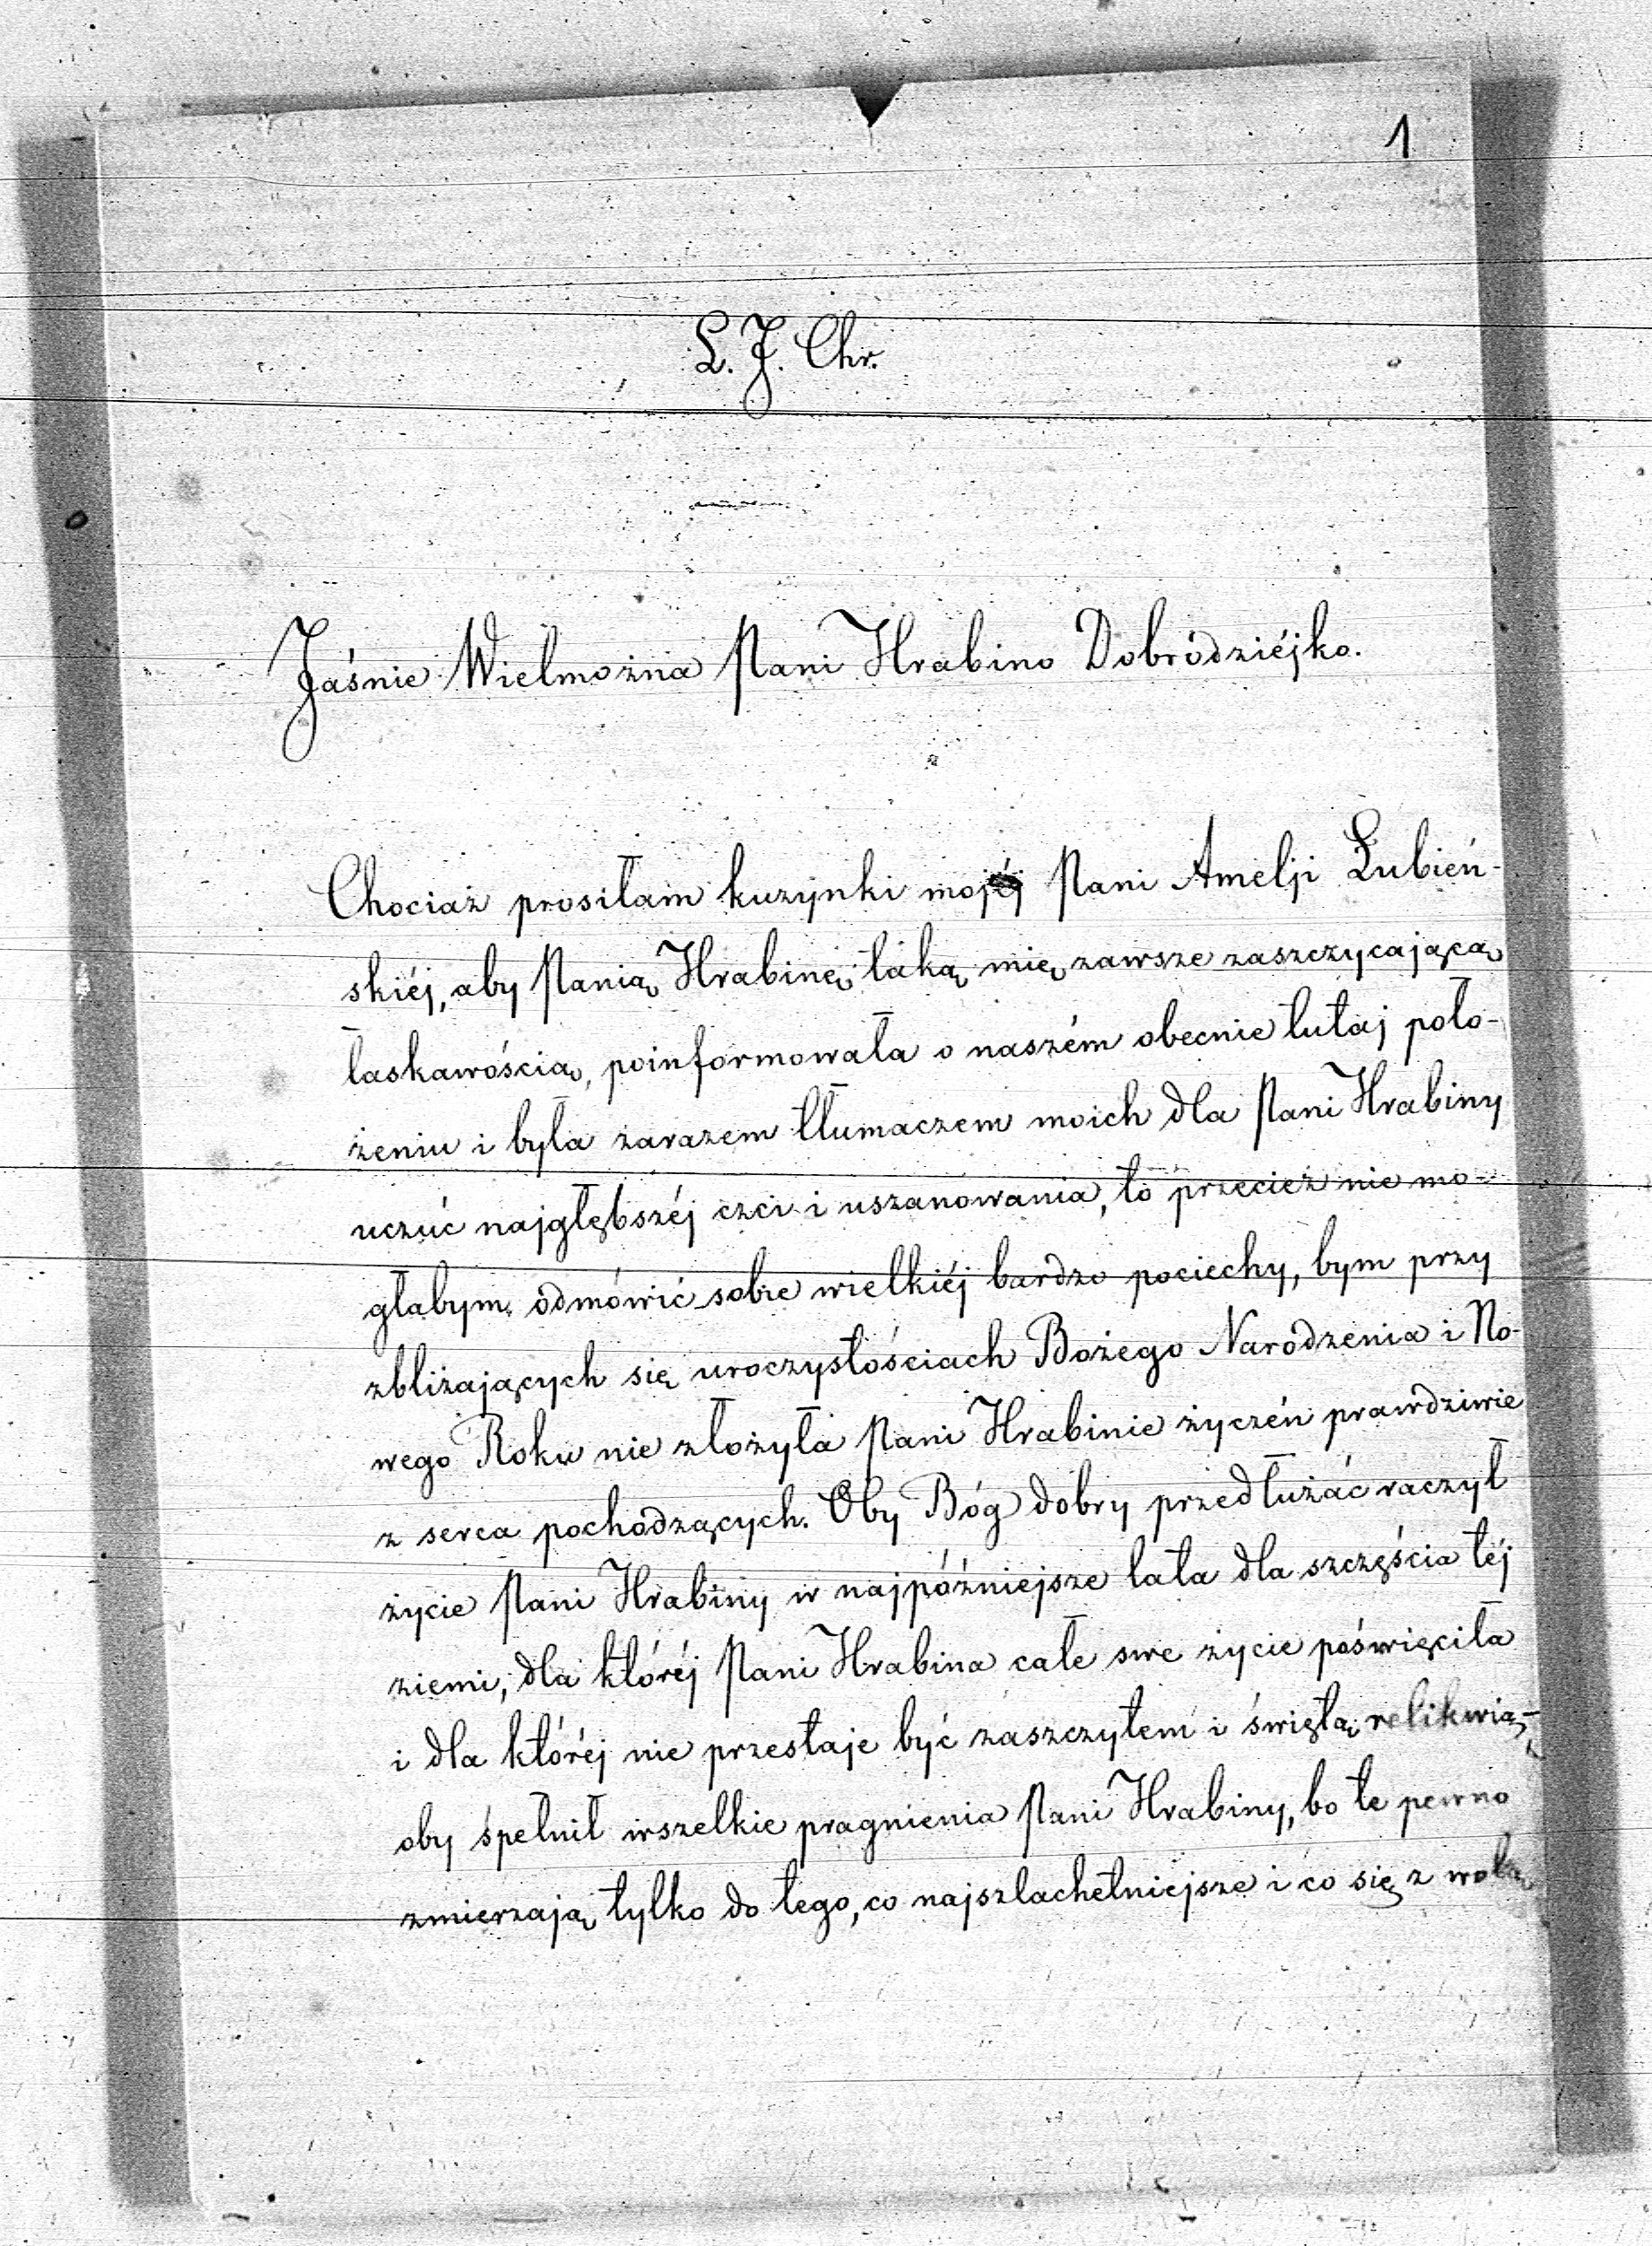 1
L. J. Chr.
Jaśnie Wielmożna Pani Hrabino Dobrodziéjko.
Chociaż prosiłam kuzynki mojéj Pani Amelji Łubień-
skiéj, aby Panią Hrabinę taką mię zawsze zaszczycającą
łaskawością, poinformowała o naszém obecnie tutaj poło-
żeniu i była zarazem tłumaczem moich dla Pani Hrabiny
uczuć najgłębszéj czci i uszanowania, to przecież nie mo-
głabym odmówić sobie wielkiéj bardzo pociechy, bym przy
zbliżających się uroczystościach Bożego Narodzenia i No-
wego Roku nie złożyła Pani Hrabinie życzeń prawdziwie
z serca pochodzących. Oby Bóg dobry przedłużać raczył
życie Pani Hrabiny w najpóźniejsze lata dla szczęścia téj
ziemi, dla któréj Pani Hrabina całe swe życie poświęciła
i dla któréj nie przestaje być zaszczytem i świętą relikwią,-
oby spełnił wszelkie pragnienia Pani Hrabiny, bo te pewno
zmierzają tylko do tego, co najszlachetniejsze i co się z wolą